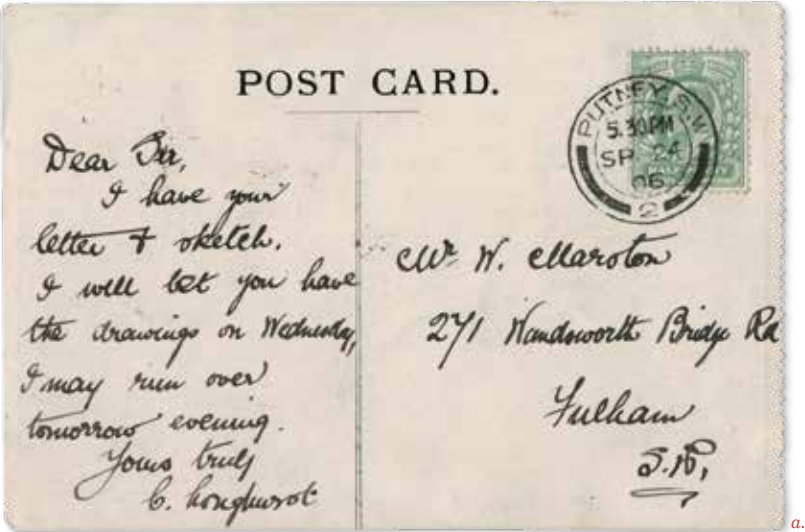 POST CARD.
PUTNEY. S.W
5.30PM
SP 24
06
2
Dear Sir,
I have your
letter & sketch.
I will let you have
the drawings on Wednesday,
I may run over
tomorrow evening.
Yours truly
C. Longhurst
Mr W. Marston
271 Wandsworth Bridge Rd
Fulham
S.W,
a.